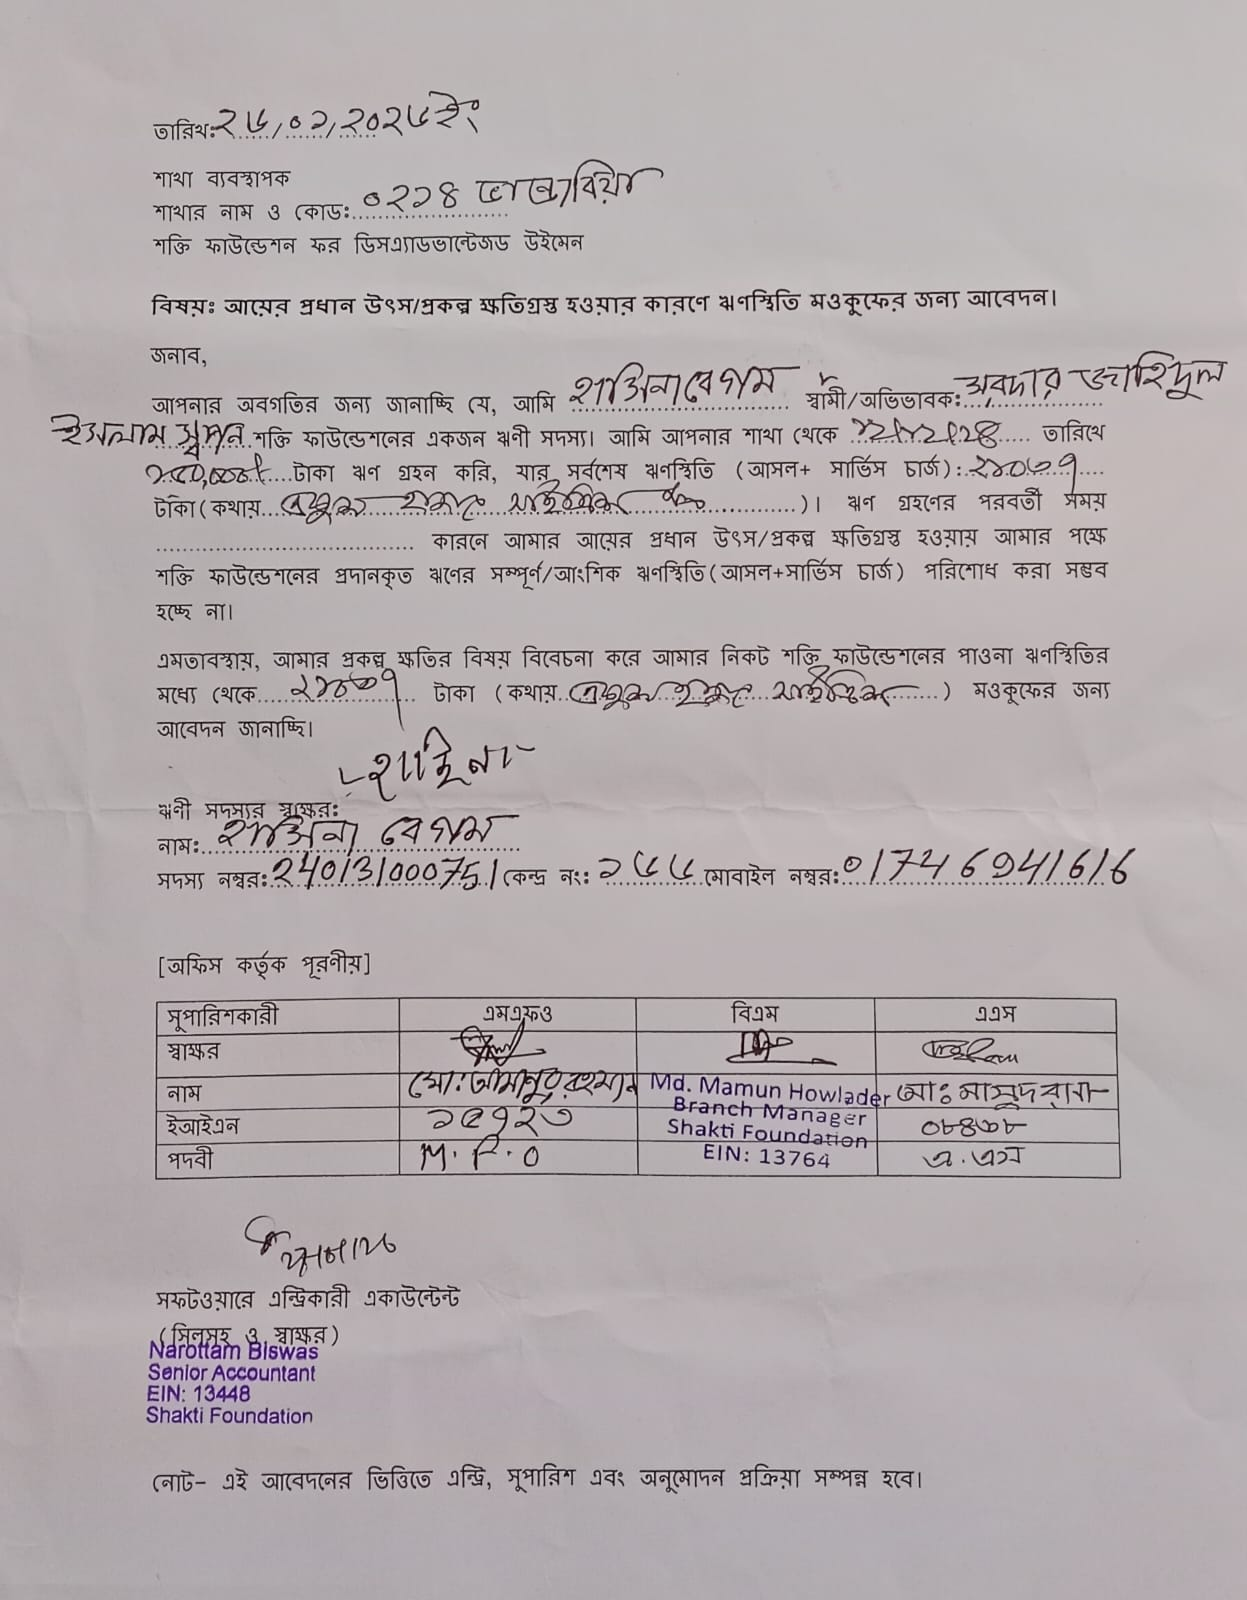 তারিখঃ ২৬/০১/২০২৬ইং
শাখা ব্যবস্থাপক
শাখার নাম ও কোডঃ ০২২৪
শক্তি ফাউন্ডেশন ফর ডিসএ্যাডভান্টেজড উইমেন
বিষয়ঃ আয়ের প্রধান উৎস/প্রকল্প ক্ষতিগ্রস্ত হওয়ার কারণে ঋণস্থিতি মওকুফের জন্য আবেদন।
জনাব,
আপনার অবগতির জন্য জানাচ্ছি যে, আমি বেগম স্বামী/অভিভাবকঃ সরদার জাহিদুল
ইসলাম স্বপন শক্তি ফাউন্ডেশনের একজন ঋণী সদস্য। আমি আপনার শাখা থেকে তারিখে
টাকা ঋণ গ্রহন করি, যার সর্বশেষ ঋণস্থিতি (আসল+ সার্ভিস চার্জ): ২১০৩৭
টাকা (কথায় একুশ হাজার সাইত্রিশ )। ঋণ গ্রহণের পরবর্তী সময়
কারনে আমার আয়ের প্রধান উৎস/প্রকল্প ক্ষতিগ্রস্ত হওয়ায় আমার পক্ষে
শক্তি ফাউন্ডেশনের প্রদানকৃত ঋণের সম্পূর্ণ/আংশিক ঋণস্থিতি(আসল+সার্ভিস চার্জ) পরিশোধ করা সম্ভব
হচ্ছে না।
এমতাবস্থায়, আমার প্রকল্প ক্ষতির বিষয় বিবেচনা করে আমার নিকট শক্তি ফাউন্ডেশনের পাওনা ঋণস্থিতির
মধ্যে থেকে ২১০৩৭ টাকা (কথায় একুশ হাজার সাইত্রিশ ) মওকুফের জন্য
আবেদন জানাচ্ছি।
ঋনী সদস্যর স্বাক্ষর:
নাম: বেগম
সদস্য নম্বর: 24013100075 কেন্দ্র নং: ১৬৬ মোবাইল নম্বর: 01746941616
[অফিস কর্তৃক পূরণীয়]
সুপারিশকারী এমএফও বিএম এএস
স্বাক্ষর
নাম মো: আমানুর রহমান Md. Mamun Howlader মোঃ মাসুদ রানা
Branch Manager
ইআইএন ১৫৭২৩ Shakti Foundation ০৮৪৩৮
পদবী M.F.O EIN: 13764 এ.এস
সফটওয়ারে এন্ট্রিকারী একাউন্টেন্ট
(সিলসহ ও স্বাক্ষর)
Narottam Biswas
Senior Accountant
EIN: 13448
Shakti Foundation
নোট- এই আবেদনের ভিত্তিতে এন্ট্রি, সুপারিশ এবং অনুমোদন প্রক্রিয়া সম্পন্ন হবে।